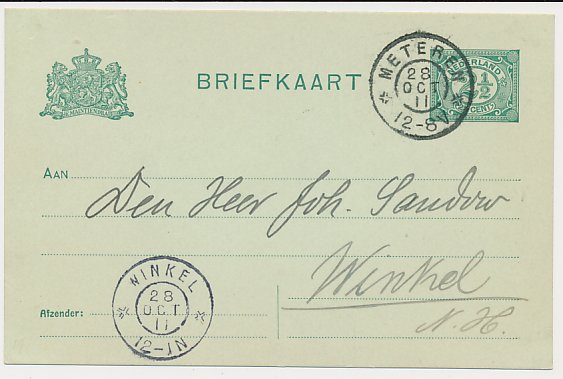 JE MAINTIENDRAI
BRIEFKAART
METEREN
28
OCT
11
12-8V
NEDERLAND
2½
CENT
AAN
Den Heer Joh. Sandow
Winkel
N.H.
Afzender:
WINKEL
28
OCT
11
12-1N